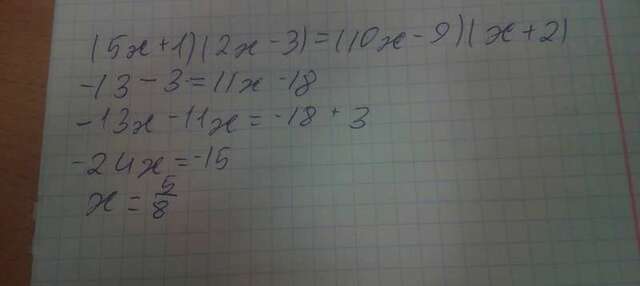 (5x+1)(2x-3)=(10x-9)(x+2)
-13-3=11x-18
-13x-11x=-18+3
-24x=-15
x=5/8